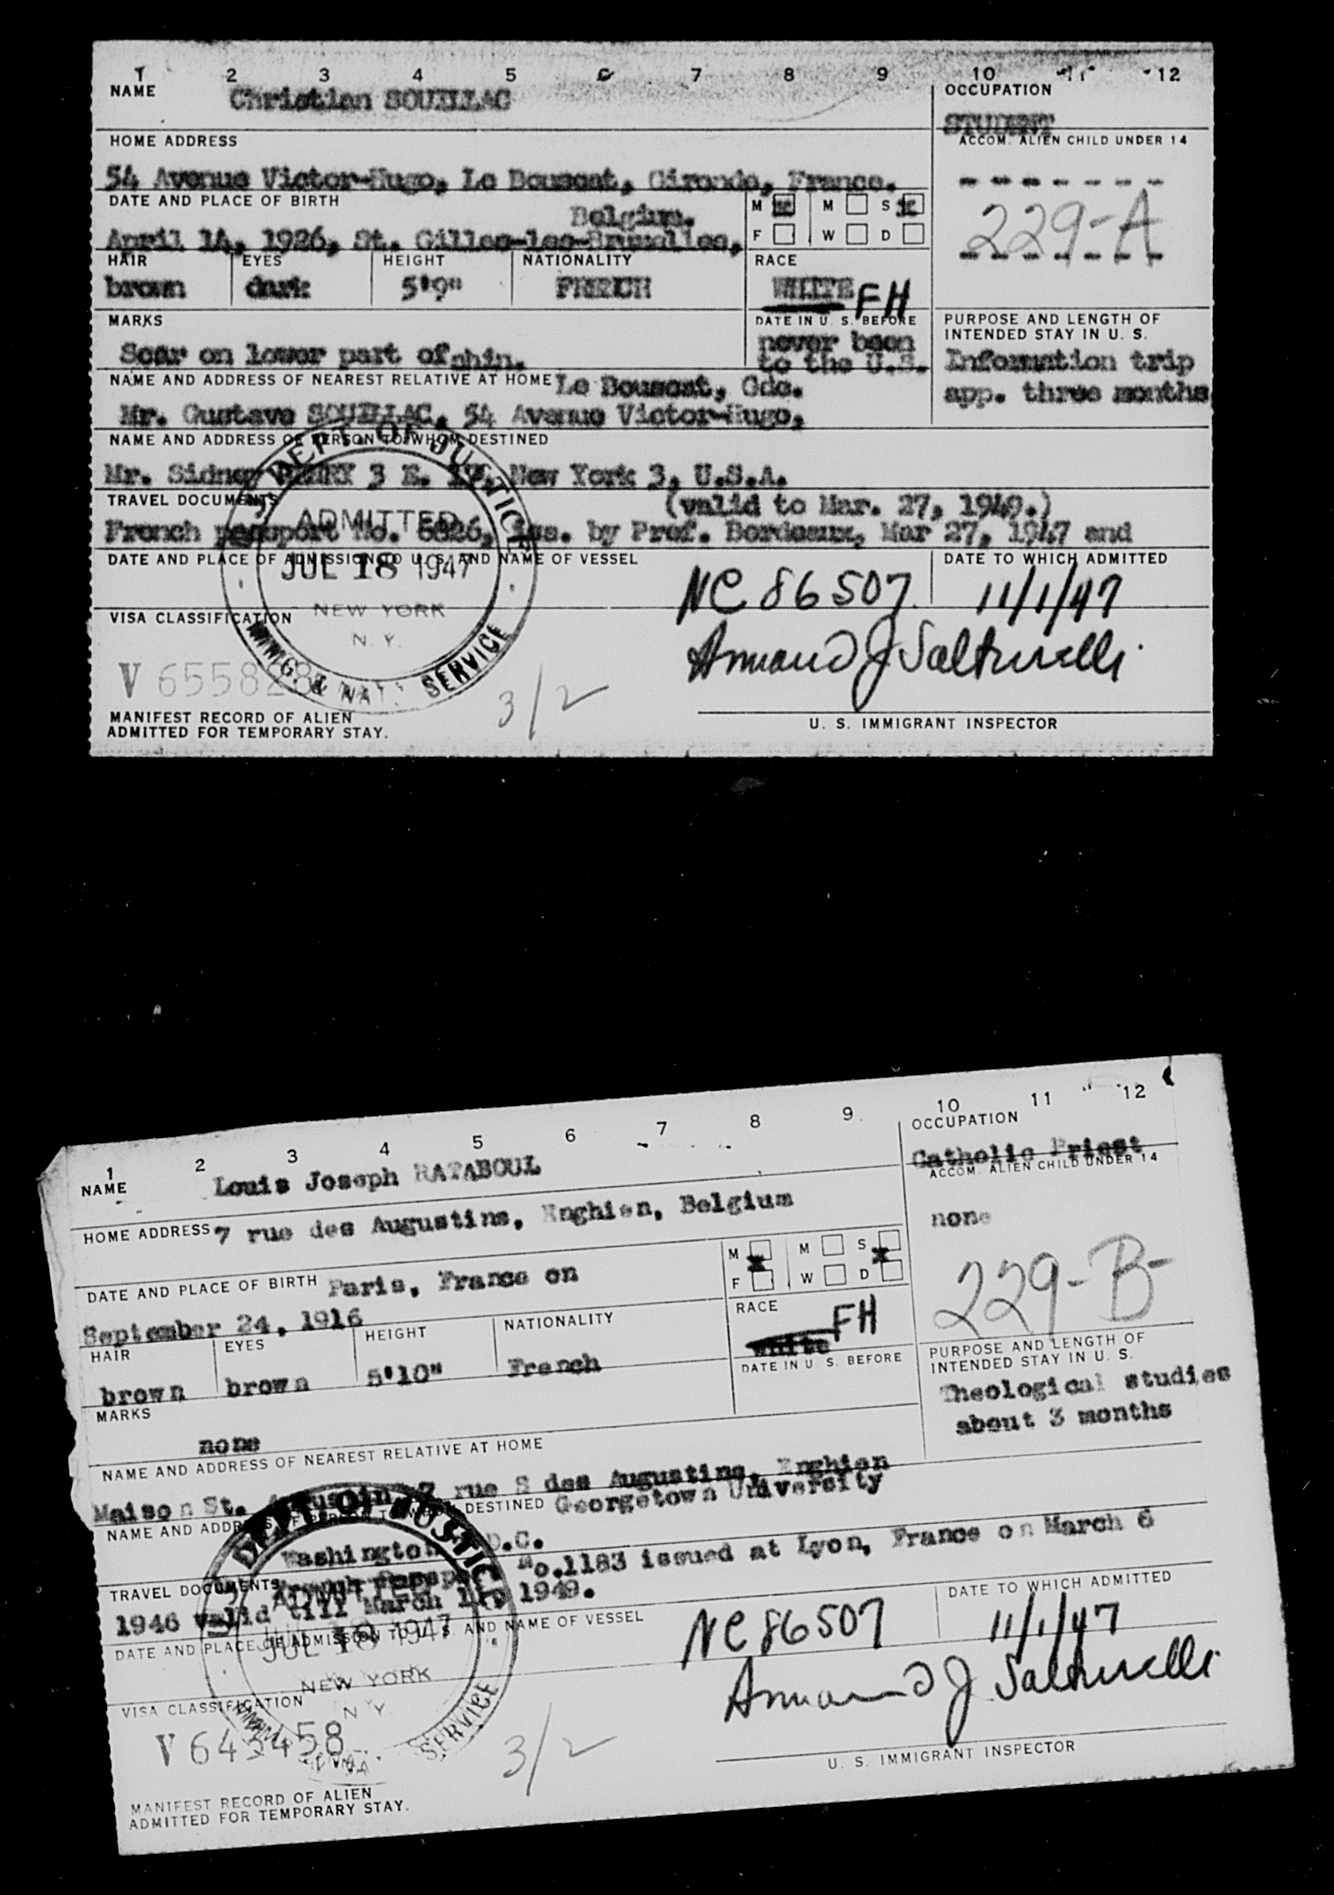 1 2 3 4 5 6 7 8 9 10 11 12
NAME Christian SOUILLAC
OCCUPATION
STUDENT
HOME ADDRESS
ACCOM. ALIEN CHILD UNDER 14
54 Avenue Victor-Hugo, Le Bouscat, Gironde, France.
- - - - - - -
DATE AND PLACE OF BIRTH
Belgium.
M F M W S D
229-A
April 14, 1926, St. Gilles-les-Bruxelles,
- - - - - - -
HAIR EYES HEIGHT NATIONALITY RACE
brown dark 5'9" FRENCH WHITE FH
MARKS
DATE IN U. S. BEFORE
PURPOSE AND LENGTH OF
INTENDED STAY IN U. S.
Scar on lower part of chin.
never been
to the U.S.
Information trip
app. three months
NAME AND ADDRESS OF NEAREST RELATIVE AT HOME Le Bouscat, Gde.
Mr. Gustave SOUILLAC, 54 Avenue Victor-Hugo,
NAME AND ADDRESS OF PERSON TO WHOM DESTINED
Mr. Sidney 3 E. New York 3, U.S.A.
TRAVEL DOCUMENTS (valid to Mar. 27, 1949.)
French passport No. 6826, iss. by Pref. Bordeaux, Mar 27, 1947 and
DATE AND PLACE OF ADMISSION TO U. S. AND NAME OF VESSEL
DATE TO WHICH ADMITTED
U.S. DEPT. OF JUSTICE
ADMITTED
JUL 18 1947
NEW YORK
N. Y.
IMMIG. & NAT. SERVICE
NC 86507 11/1/47
VISA CLASSIFICATION
Armand J Salturelli
V 655828
3/2
MANIFEST RECORD OF ALIEN
ADMITTED FOR TEMPORARY STAY.
U. S. IMMIGRANT INSPECTOR
1 2 3 4 5 6 7 8 9 10 11 12
NAME Louis Joseph RATABOUL
OCCUPATION
Catholic Priest
ACCOM. ALIEN CHILD UNDER 14
none
HOME ADDRESS 7 rue des Augustins, Enghien, Belgium
DATE AND PLACE OF BIRTH Paris, France on
September 24, 1916
M F M W S D
229-B-
HAIR EYES HEIGHT NATIONALITY RACE
brown brown 5'10" French white FH
DATE IN U. S. BEFORE
PURPOSE AND LENGTH OF
INTENDED STAY IN U. S.
Theological studies
about 3 months
MARKS
none
NAME AND ADDRESS OF NEAREST RELATIVE AT HOME
Maison St. Augustin, 7 rue S des Augustins, Enghien
NAME AND ADDRESS OF PERSON TO WHOM DESTINED Georgetown University
Washington D.C.
TRAVEL DOCUMENTS French Passport No.1183 issued at Lyon, France on March 6
1946 valid till March 1949.
DATE AND PLACE OF ADMISSION TO U. S. AND NAME OF VESSEL
DATE TO WHICH ADMITTED
U.S. DEPT. OF JUSTICE
ADMITTED
JUL 18 1947
NEW YORK
N. Y.
SERVICE
NC 86507 11/1/47
VISA CLASSIFICATION
Armand J Salturelli
V 643458
3/2
MANIFEST RECORD OF ALIEN
ADMITTED FOR TEMPORARY STAY.
U. S. IMMIGRANT INSPECTOR